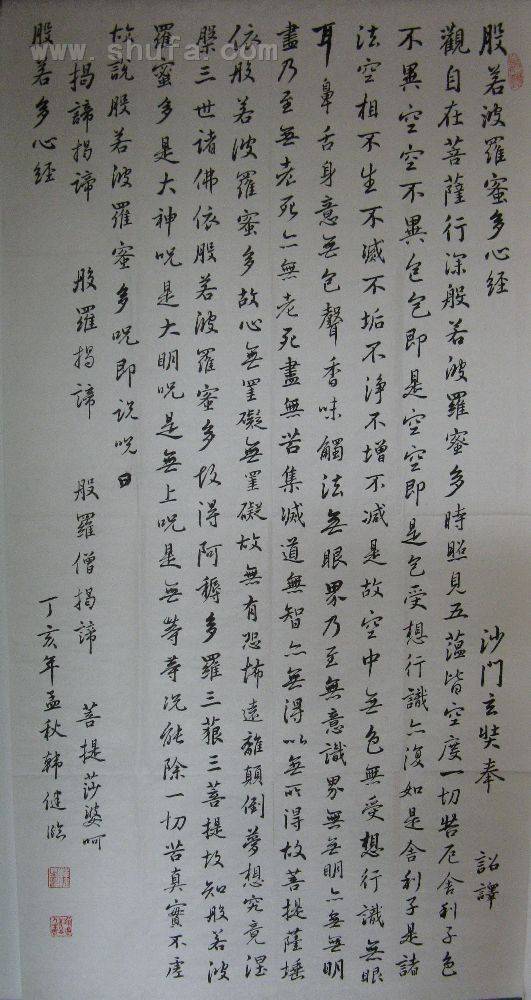 www.shufa.com
般若波羅蜜多心経
沙門玄奘奉 詔譯
觀自在菩薩行深般若波羅蜜多時照見五蘊皆空度一切苦厄舍利子色
不異空空不異色色即是空空即是色受想行識亦復如是舍利子是諸
法空相不生不滅不垢不淨不增不減是故空中無色無受想行識無眼
耳鼻舌身意無色聲香味觸法無眼界乃至無意識界無無明亦無無明
盡乃至無老死亦無老死盡無苦集滅道無智亦無得以無所得故菩提薩埵
依般若波羅蜜多故心無罣礙無罣礙故無有恐怖遠離顛倒夢想究竟涅
槃三世諸佛依般若波羅蜜多故得阿耨多羅三藐三菩提故知般若波
羅蜜多是大神呪是大明呪是無上呪是無等等呪能除一切苦真實不虛
故說般若波羅蜜多呪即說呪曰
揭諦揭諦 般羅揭諦 般羅僧揭諦 菩提莎婆呵
般若多心経
丁亥年孟秋韩健临